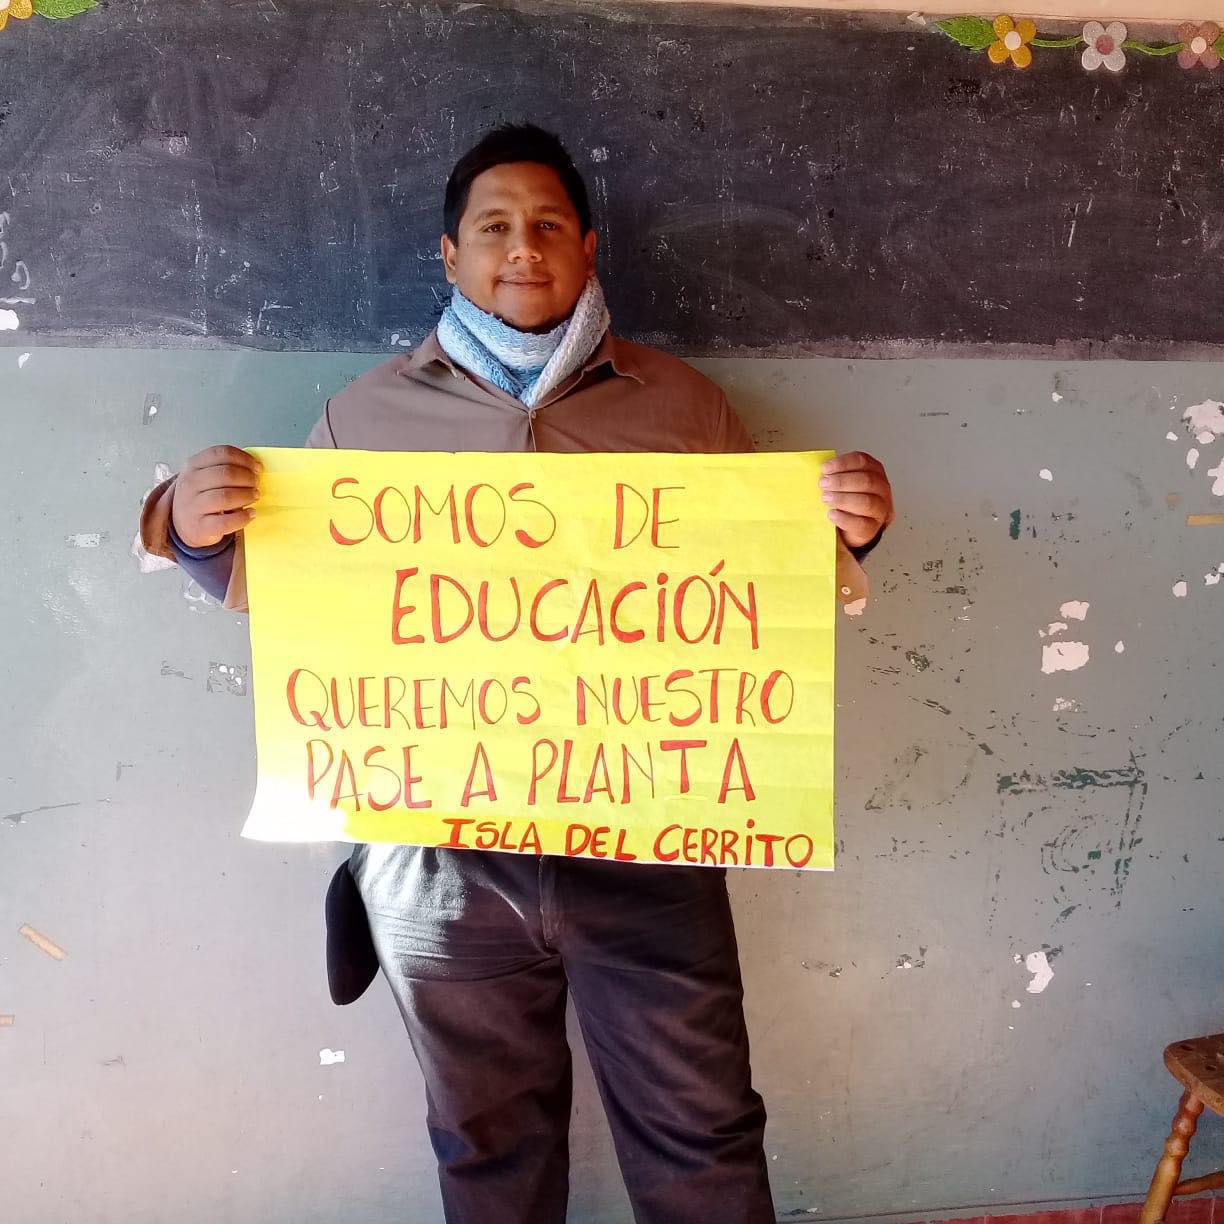 SOMOS DE
EDUCACIÓN
QUEREMOS NUESTRO
PASE A PLANTA
ISLA DEL CERRITO